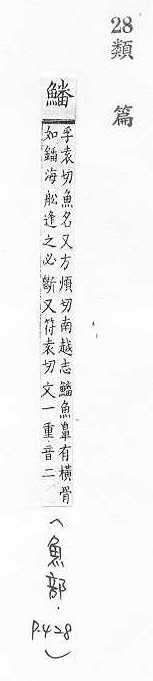 28
類篇
鱕
孚袁切魚名又方煩切南越志鱕魚鼻有橫骨
如鐇海船逢之必斷又符袁切文一重音二
(魚部.
P.428)